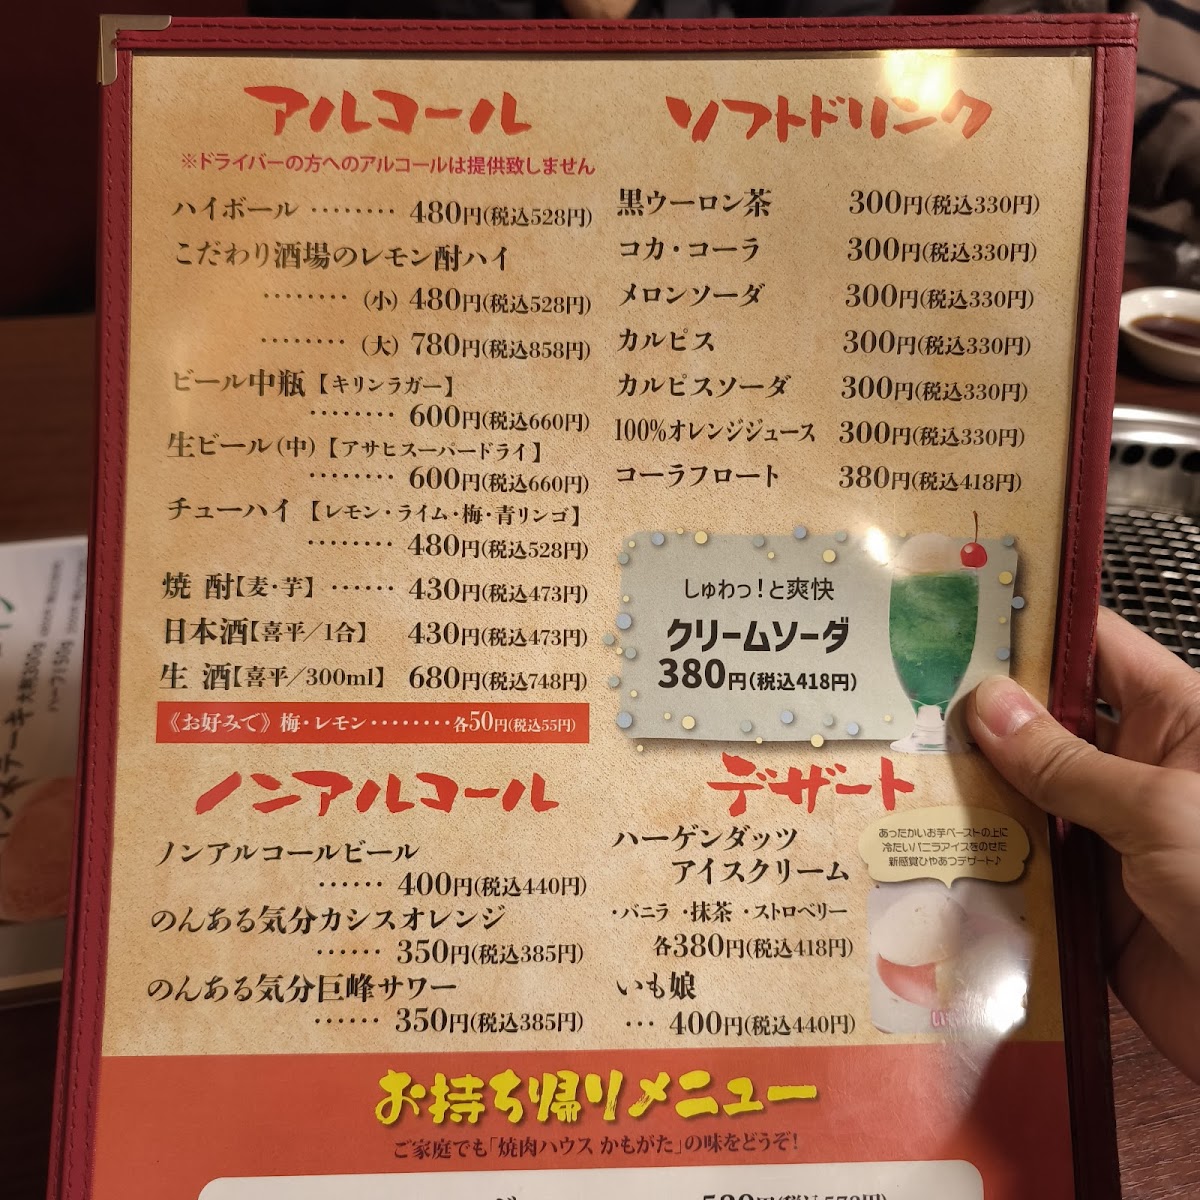 アルコール
※ドライバーの方へのアルコールは提供致しません
ハイボール ‥‥‥‥ 480円(税込528円)
こだわり酒場のレモン酎ハイ
‥‥‥‥ (小) 480円(税込528円)
‥‥‥‥ (大) 780円(税込858円)
ビール中瓶【キリンラガー】
‥‥‥‥ 600円(税込660円)
生ビール(中)【アサヒスーパードライ】
‥‥‥‥ 600円(税込660円)
チューハイ【レモン・ライム・梅・青リンゴ】
‥‥‥‥ 480円(税込528円)
焼 酎【麦・芋】‥‥‥ 430円(税込473円)
日本酒【喜平／1合】 430円(税込473円)
生 酒【喜平／300ml】 680円(税込748円)
《お好みで》梅・レモン ‥‥‥‥ 各50円(税込55円)
ソフトドリンク
黒ウーロン茶 300円(税込330円)
コカ・コーラ 300円(税込330円)
メロンソーダ 300円(税込330円)
カルピス 300円(税込330円)
カルピスソーダ 300円(税込330円)
100%オレンジジュース 300円(税込330円)
コーラフロート 380円(税込418円)
しゅわっ!と爽快
クリームソーダ
380円(税込418円)
ノンアルコール
ノンアルコールビール
‥‥‥ 400円(税込440円)
のんある気分カシスオレンジ
‥‥‥ 350円(税込385円)
のんある気分巨峰サワー
‥‥‥ 350円(税込385円)
デザート
ハーゲンダッツ
アイスクリーム
・バニラ ・抹茶 ・ストロベリー
各380円(税込418円)
いも娘
… 400円(税込440円)
あったかいお芋ペーストの上に
冷たいバニラアイスをのせた
新感覚ひやあつデザート♪
お持ち帰りメニュー
ご家庭でも「焼肉ハウス かもがた」の味をどうぞ!